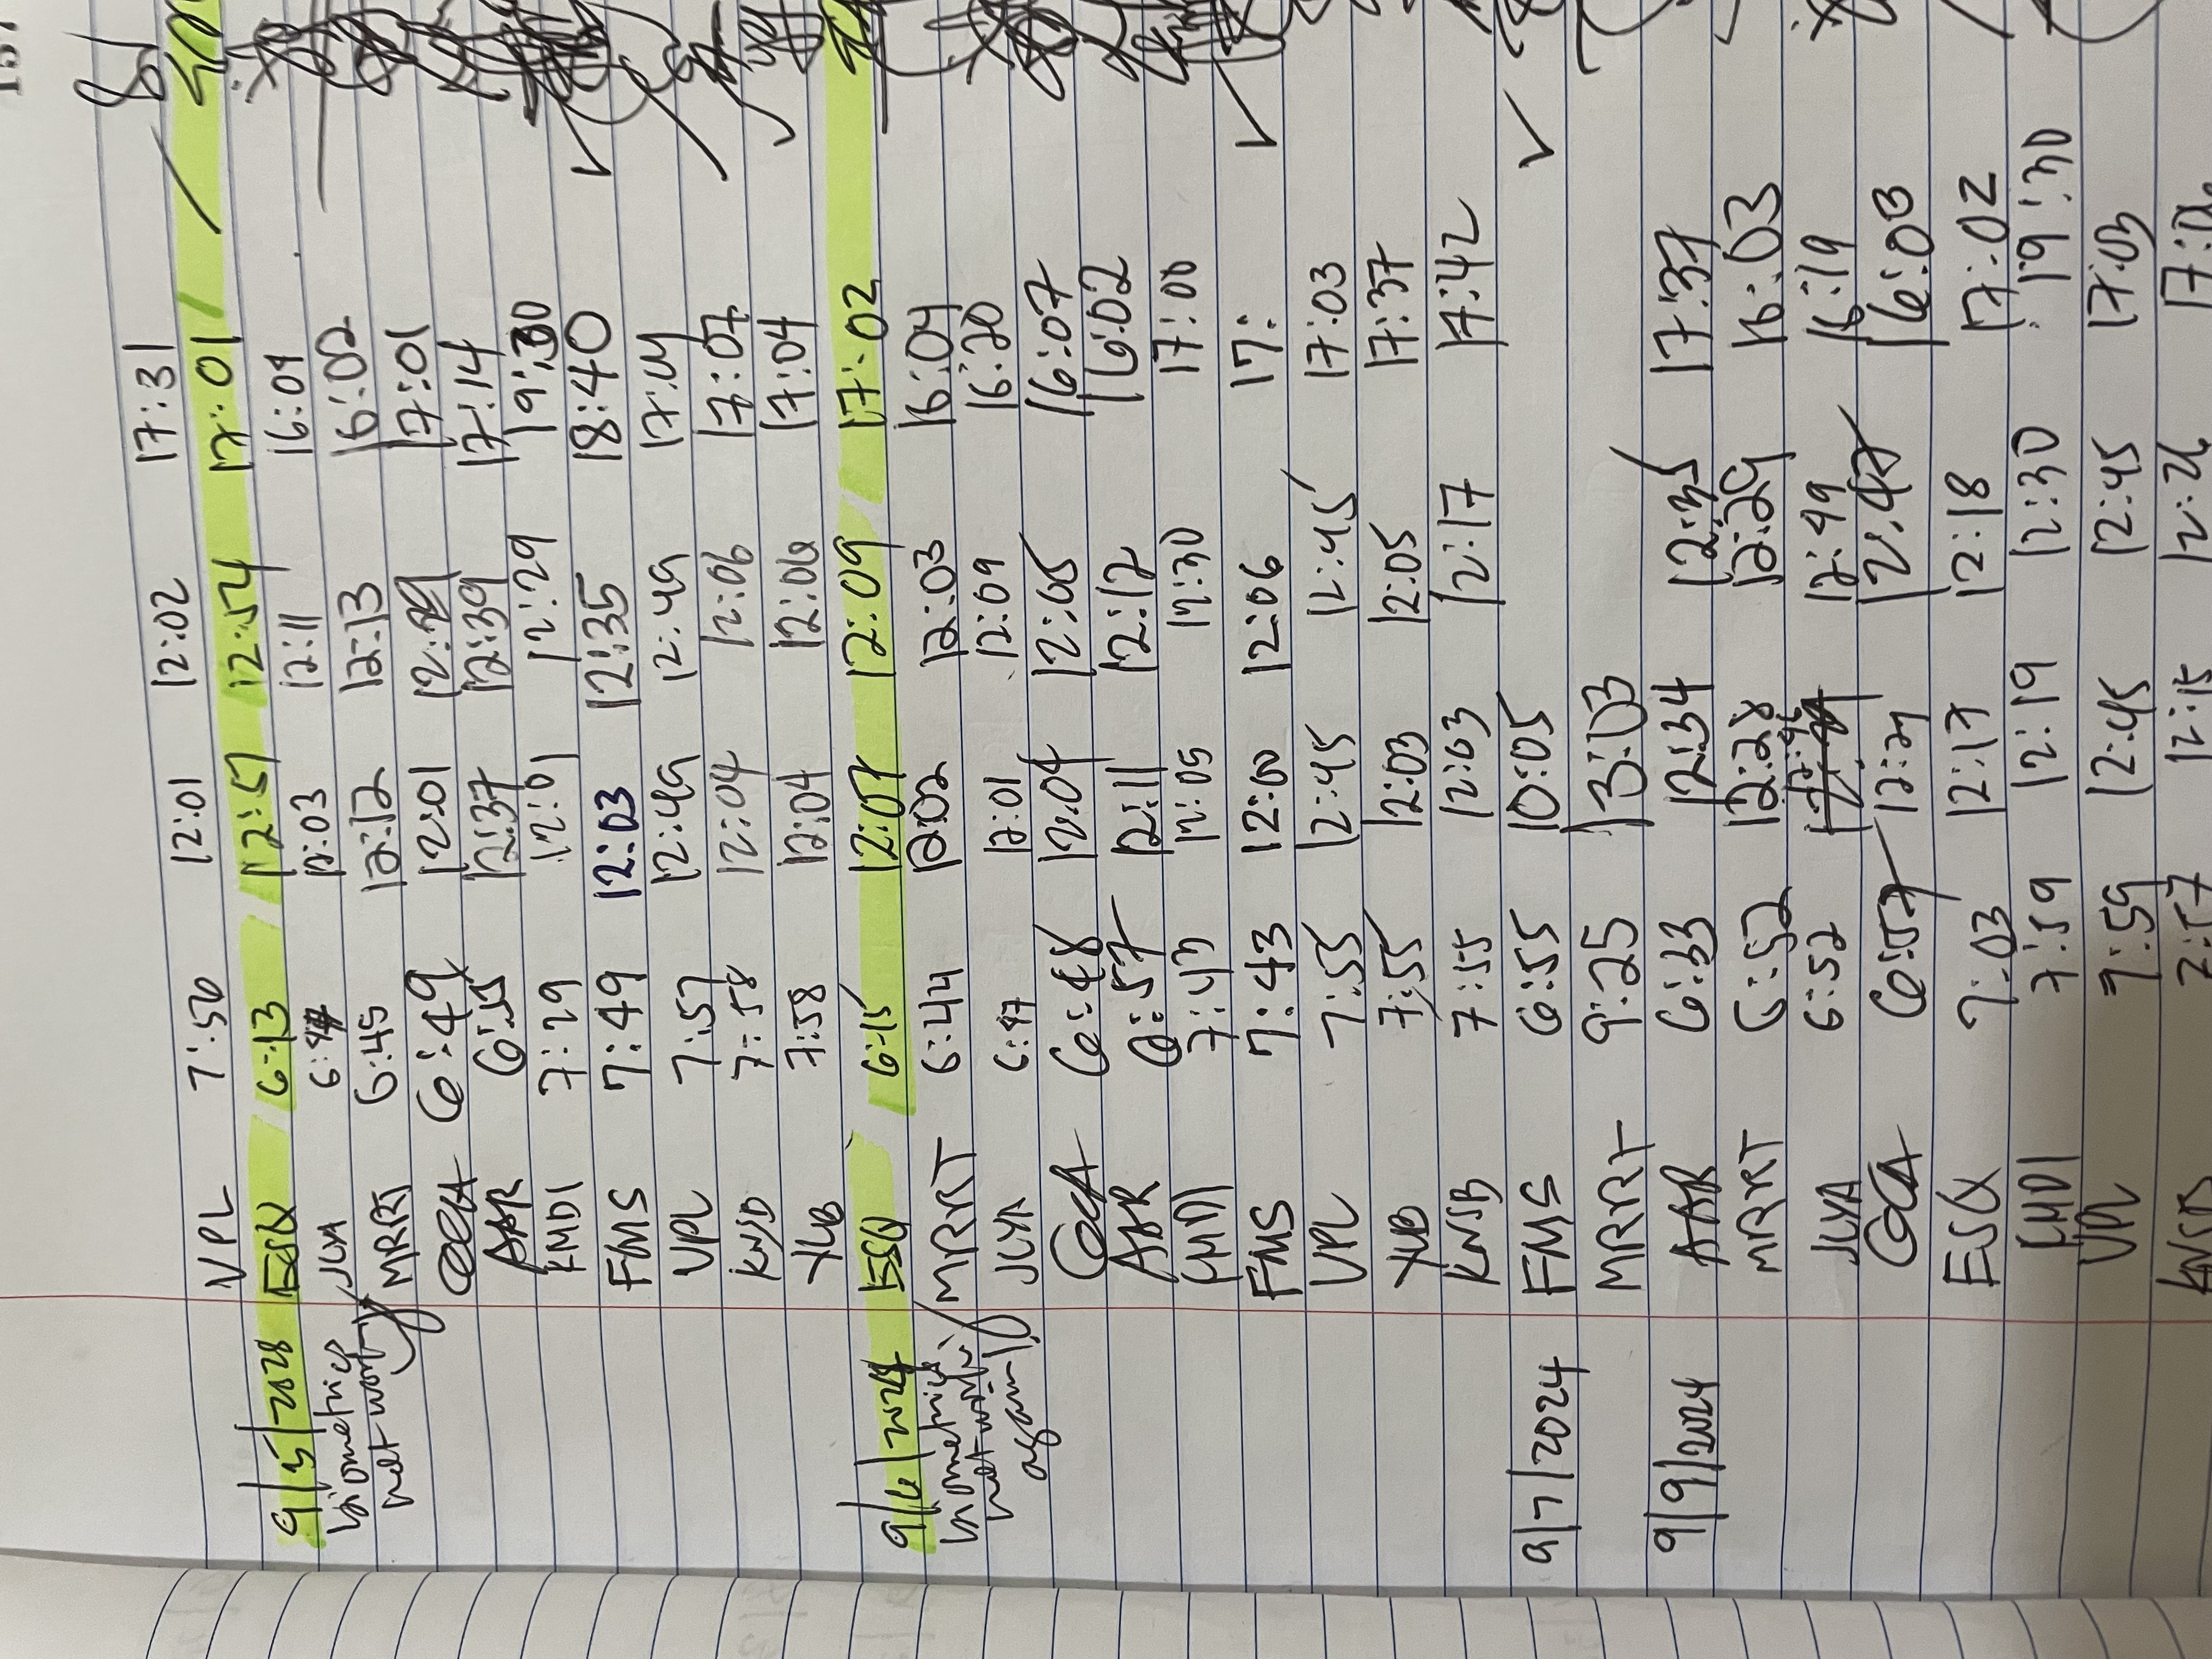 VPL 7:50 12:01 12:02 17:31
9/5/2028 ESQ 6:13 12:51 12:54 17:01
biometrics JLYA 12:03 12:11 16:09
not work MRRT 6:45 12:12 12:13 16:02
GCCA 6:49 12:01 17:01
AAR 6:55 12:37 12:39 17:14
KMDI 7:29 12:01 12:29 19:30
FMS 7:49 12:03 12:35 18:40
VPL 7:57 12:49 12:49 17:04
KNSB 7:58 12:04 12:06 17:07
YLLB 7:58 12:04 12:06 17:04
9/6/2024 ESQ 6:15 12:07 12:09 17:02
biometrics MRRT 6:44 12:02 12:03 16:04
not work JLYA 6:47 12:01 12:09 16:20
again GCCA 6:48 12:04 12:05 16:07
AAR 6:57 12:11 12:12 16:02
KMDI 7:43 12:05 12:30 17:00
FMS 7:43 12:00 12:06 17:
VPL 7:55 12:45 12:45 17:03
YLLB 7:55 12:03 12:05 17:37
KNSB 7:55 12:03 12:17 17:42
9/7/2024 FMS 6:55 10:05
MRRT 9:25 13:03
9/9/2024 AAR 6:33 12:34 12:35 17:37
MRRT 6:52 12:28 12:29 16:03
JLYA 6:52 12:49 16:19
GCCA 6:57 12:27 12:47 16:03
ESQ 7:03 12:17 12:18 17:02
KMDI 7:59 12:19 12:30 19:30
VPL 7:59 12:45 12:45 17:03
KNSB 7:57 12:15 12:26